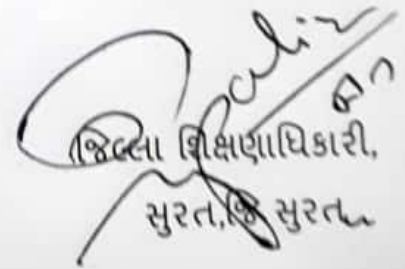 જિલ્લા શિક્ષણાધિકારી,
સુરત,જિ સુરત.